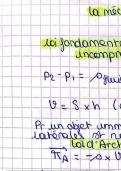 la méc
loi fondamenta
incomp
P₂ - P₁ = ρ
V = S × h
Pr un objet imm
latérales st n
loi d'Arch
π_A = -ρ V